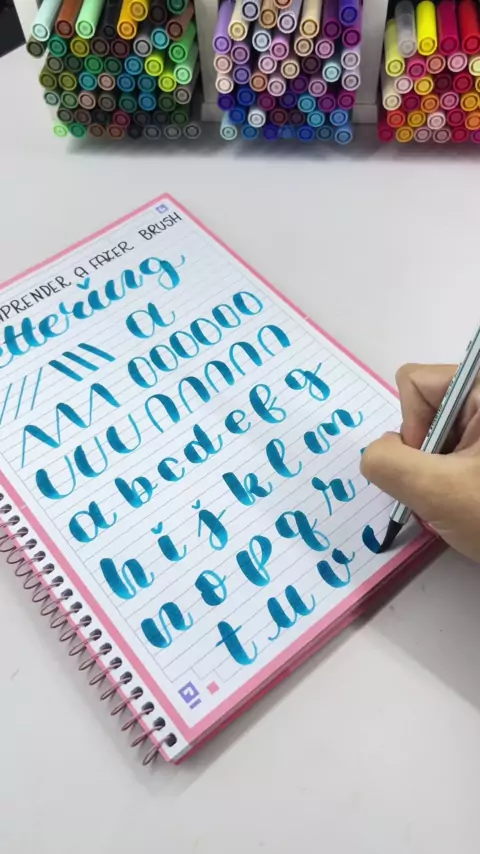 APRENDER A FAZER BRUSH
lettering
a
a b c d e f g
h i j k l m
n o p q r
t u v